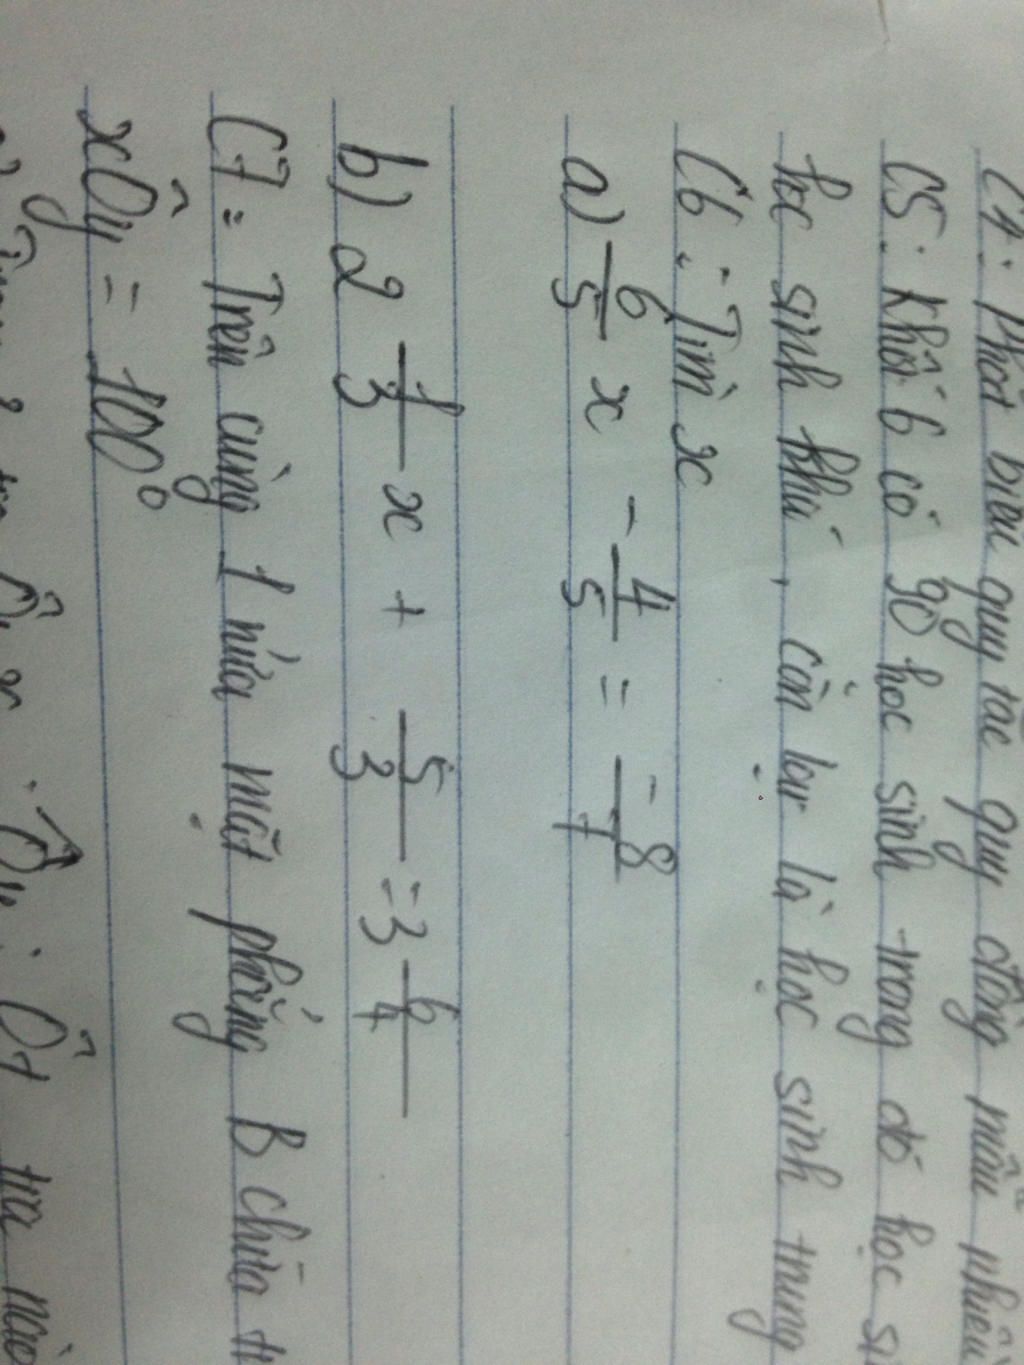 C4: Phát biểu quy tắc quy đồng mẫu nhiều
C5: Khối 6 có 90 học sinh trong đó học s
học sinh khá, còn lại là học sinh trung
C6: Tìm x
a) 6/5 x - 4/5 = -8/7
b) 2 1/3 x + 5/3 = 3 6/4
C7: Trên cùng 1 nửa mặt phẳng B chứa t
xÔy = 100°